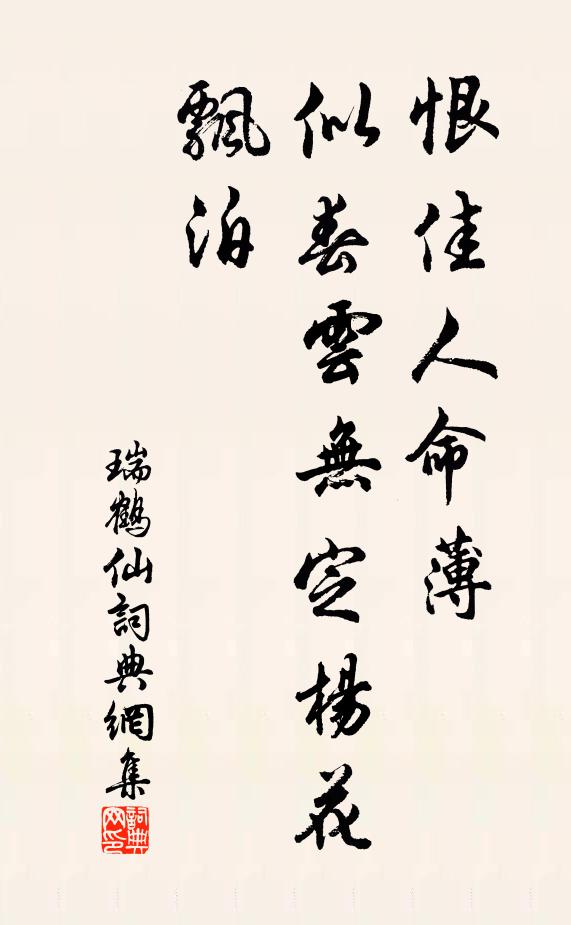 恨佳人命薄
似春雲無定楊花
飄泊
瑞鶴仙詞典網集
詞典网印